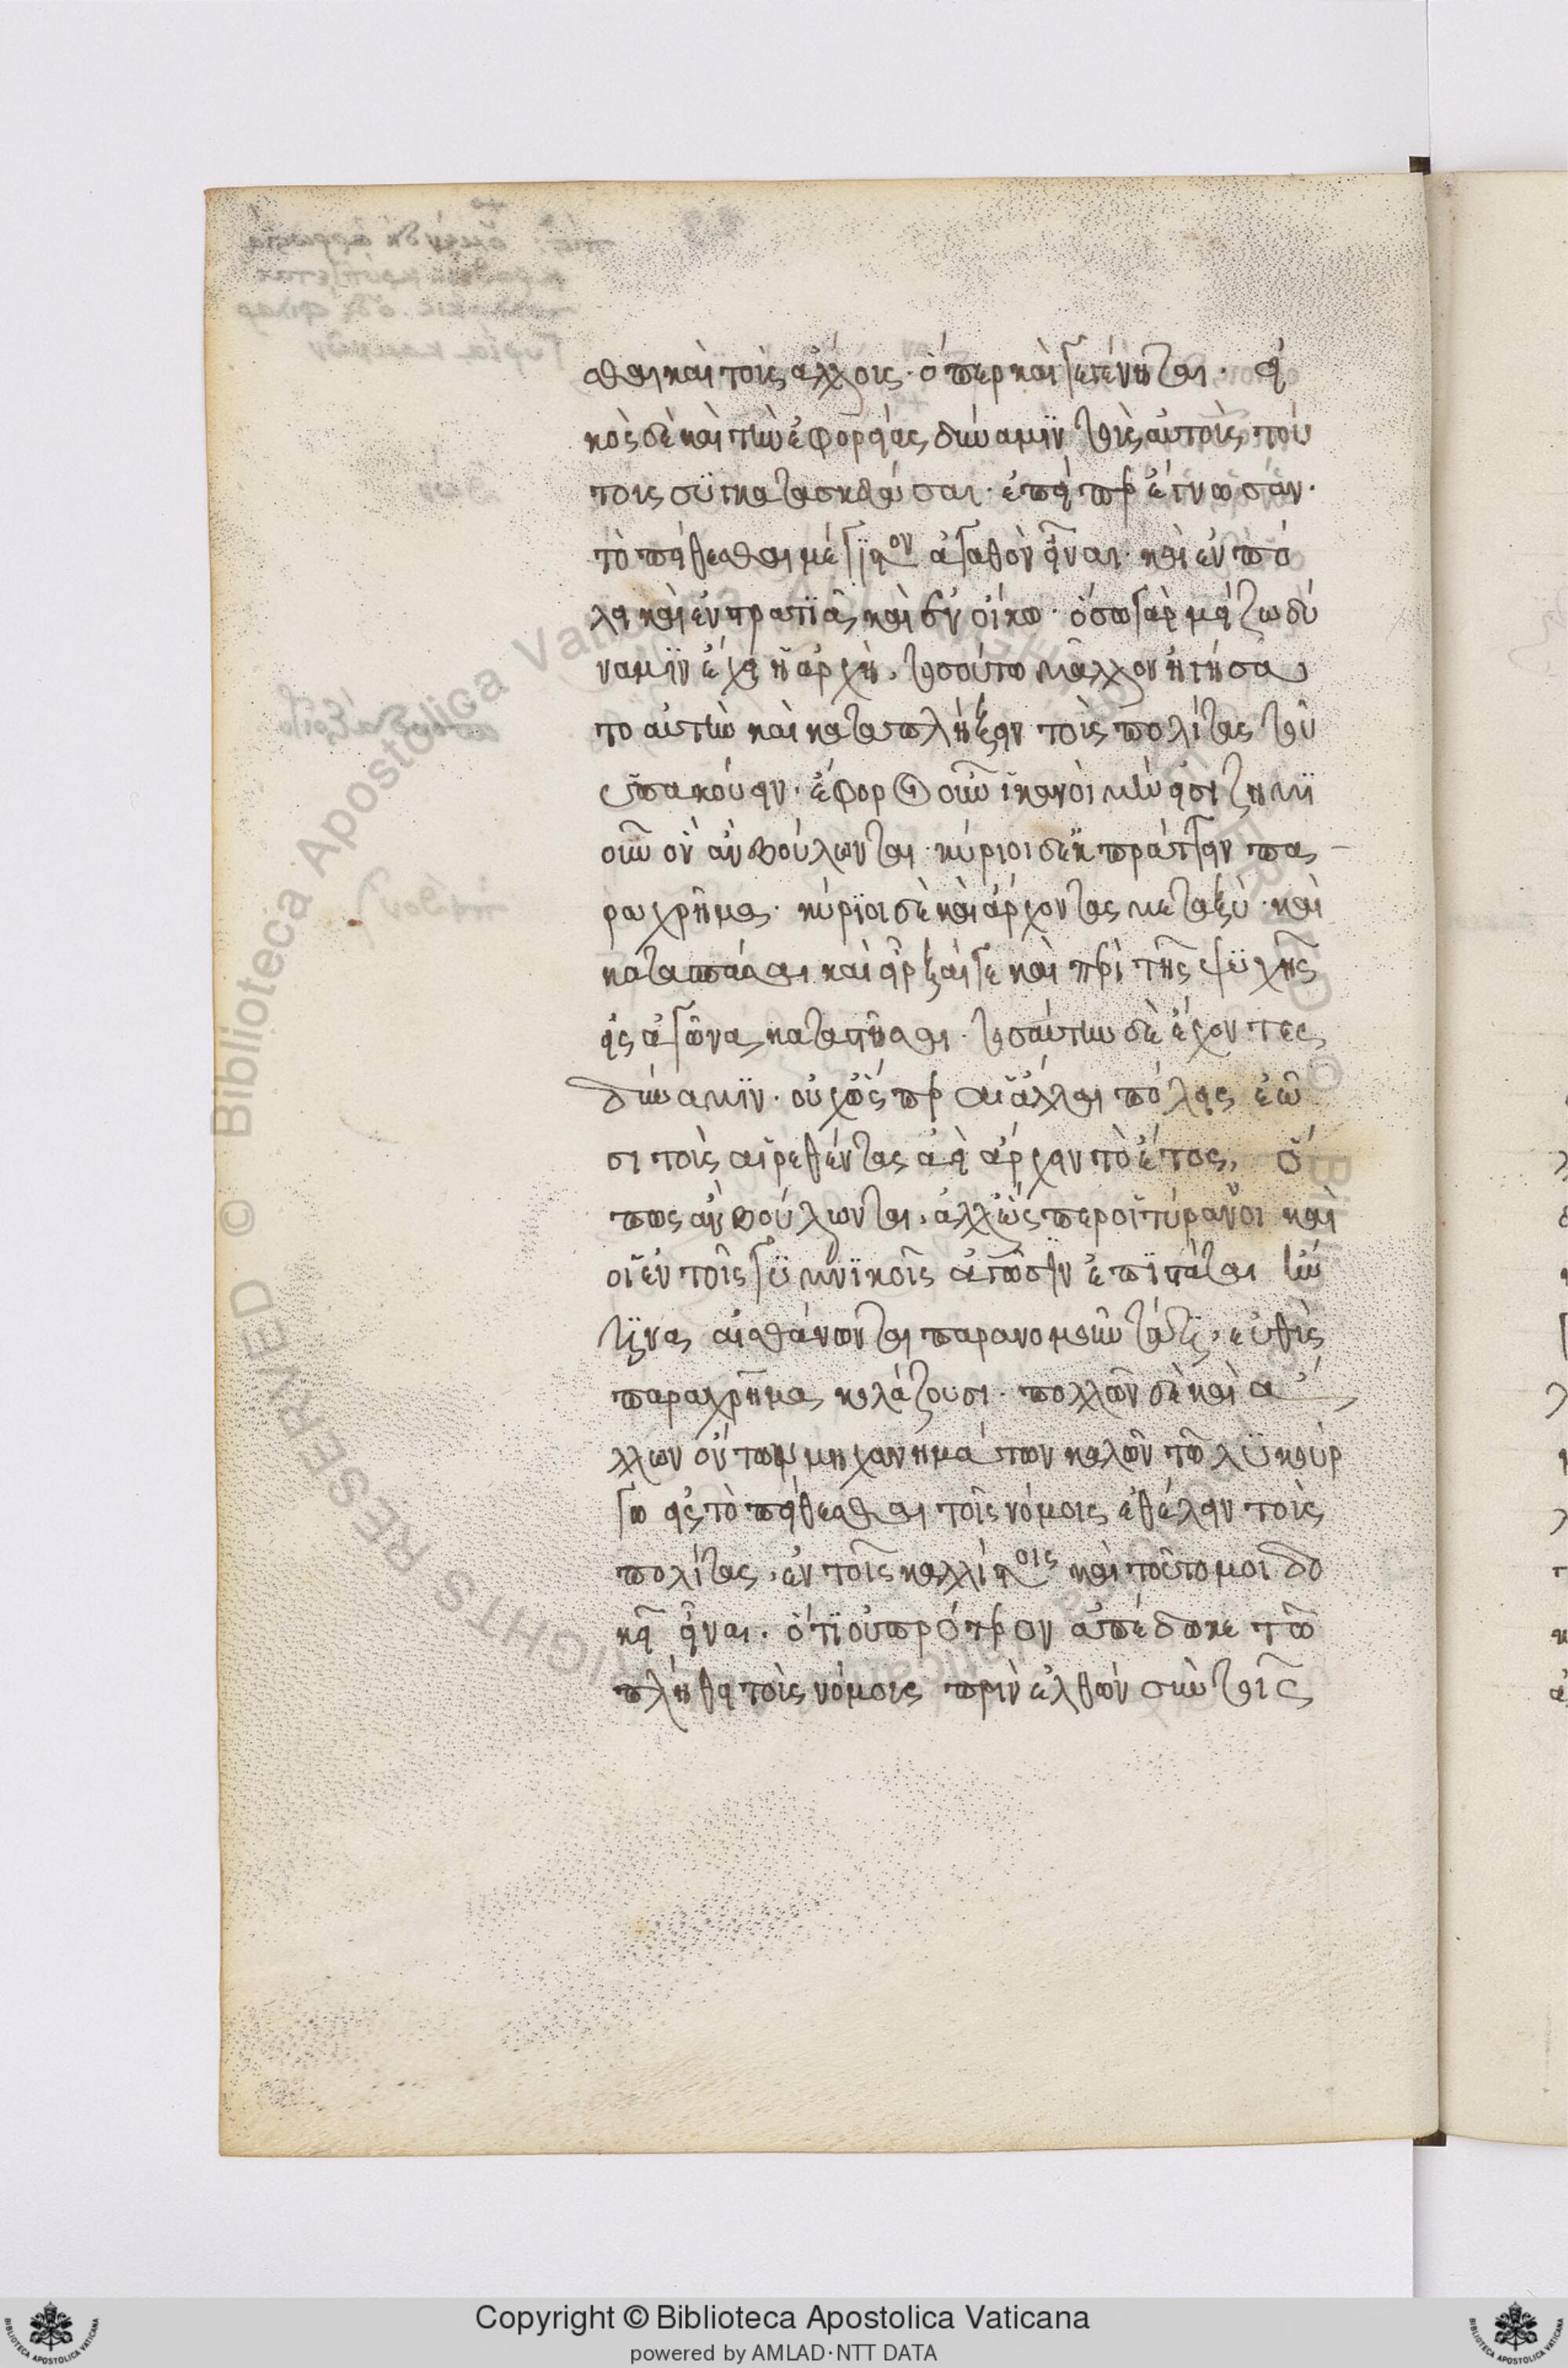 σθαι καὶ τοὺς ἄλλους· ὅπερ καὶ γεγένηται· εἰ
κὸς δὲ καὶ τὴν ἐφορείας δύναμιν τοὺς αὐτοὺς τού
τους συγκατασκευάσαι· ἐπείπερ ἔγνωσαν·
τὸ πείθεσθαι μέγιστον ἀγαθὸν εἶναι· καὶ ἐν πό
λει καὶ ἐν στρατιᾷ καὶ ἐν οἴκῳ· ὅσῳ γὰρ μείζω δύ
ναμιν ἔχει ἡ ἀρχὴ, τοσούτῳ μᾶλλον ἡγήσαν
το αὐτὴν καὶ καταπλήξειν τοὺς πολίτας τοῦ
ὑπακούειν· ἔφοροι οὖν ἱκανοὶ μὲν εἰσι ζημι
οῦν ὃν ἂν βούλωνται· κύριοι δ' ἐκπράττειν πα
ραχρῆμα· κύριοι δὲ καὶ ἄρχοντας μεταξύ· καὶ
καταπαῦσαι καὶ εἶρξαί γε καὶ περὶ τῆς ψυχῆς
εἰς ἀγῶνα καταστῆσαι· τοσαύτην δὲ ἔχοντες
δύναμιν· οὐχ ὥσπερ αἱ ἄλλαι πόλεις ἐῶ
σι τοὺς αἱρεθέντας ἀεὶ ἄρχειν τὸ ἔτος, ὅ
πως ἂν βούλωνται, ἀλλ' ὥσπερ οἱ τύραννοι καὶ
οἱ ἐν τοῖς γυμνικοῖς ἀγῶσιν ἐπιστάται ἤν
τινα αἰσθάνωνται παρανομοῦντά τι, εὐθὺς
παραχρῆμα κολάζουσι· πολλῶν δὲ καὶ ἄ
λλων ὄντων μηχανημάτων καλῶν τῷ λυκούρ
γῳ εἰς τὸ πείθεσθαι τοῖς νόμοις ἐθέλειν τοὺς
πολίτας, ἐν τοῖς καλλίστοις καὶ τοῦτό μοι δο
κεῖ εἶναι· ὅτι οὐ πρότερον ἀπέδωκε τῷ
πλήθει τοὺς νόμους πρὶν ἐλθὼν σὺν τοῖς
Copyright © Biblioteca Apostolica Vaticana
powered by AMLAD·NTT DATA